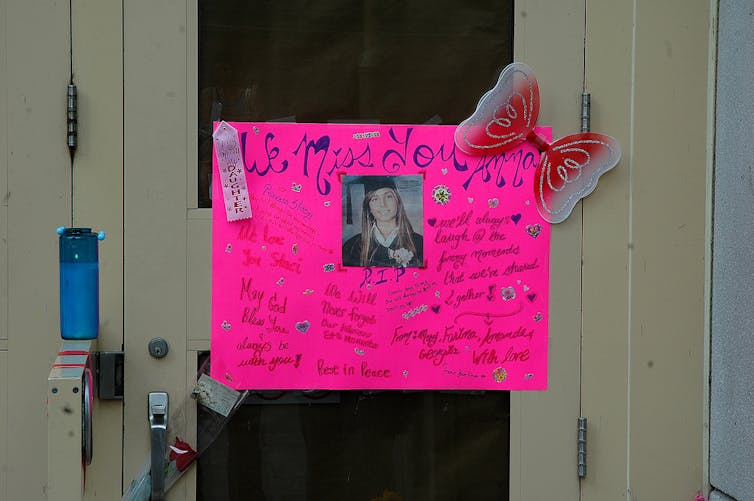 We Miss You Anna
DAUGHTER
Princess Stacy
We Love
You Staci
May God
Bless You
always be
with you!
R.I.P
We Will
Never forget
Our
Moments
Rest in Peace
we'll always
laugh @ the
funny moments
that we've shared
together!
From: Mary, Fatima, Amanda
Georgia With love